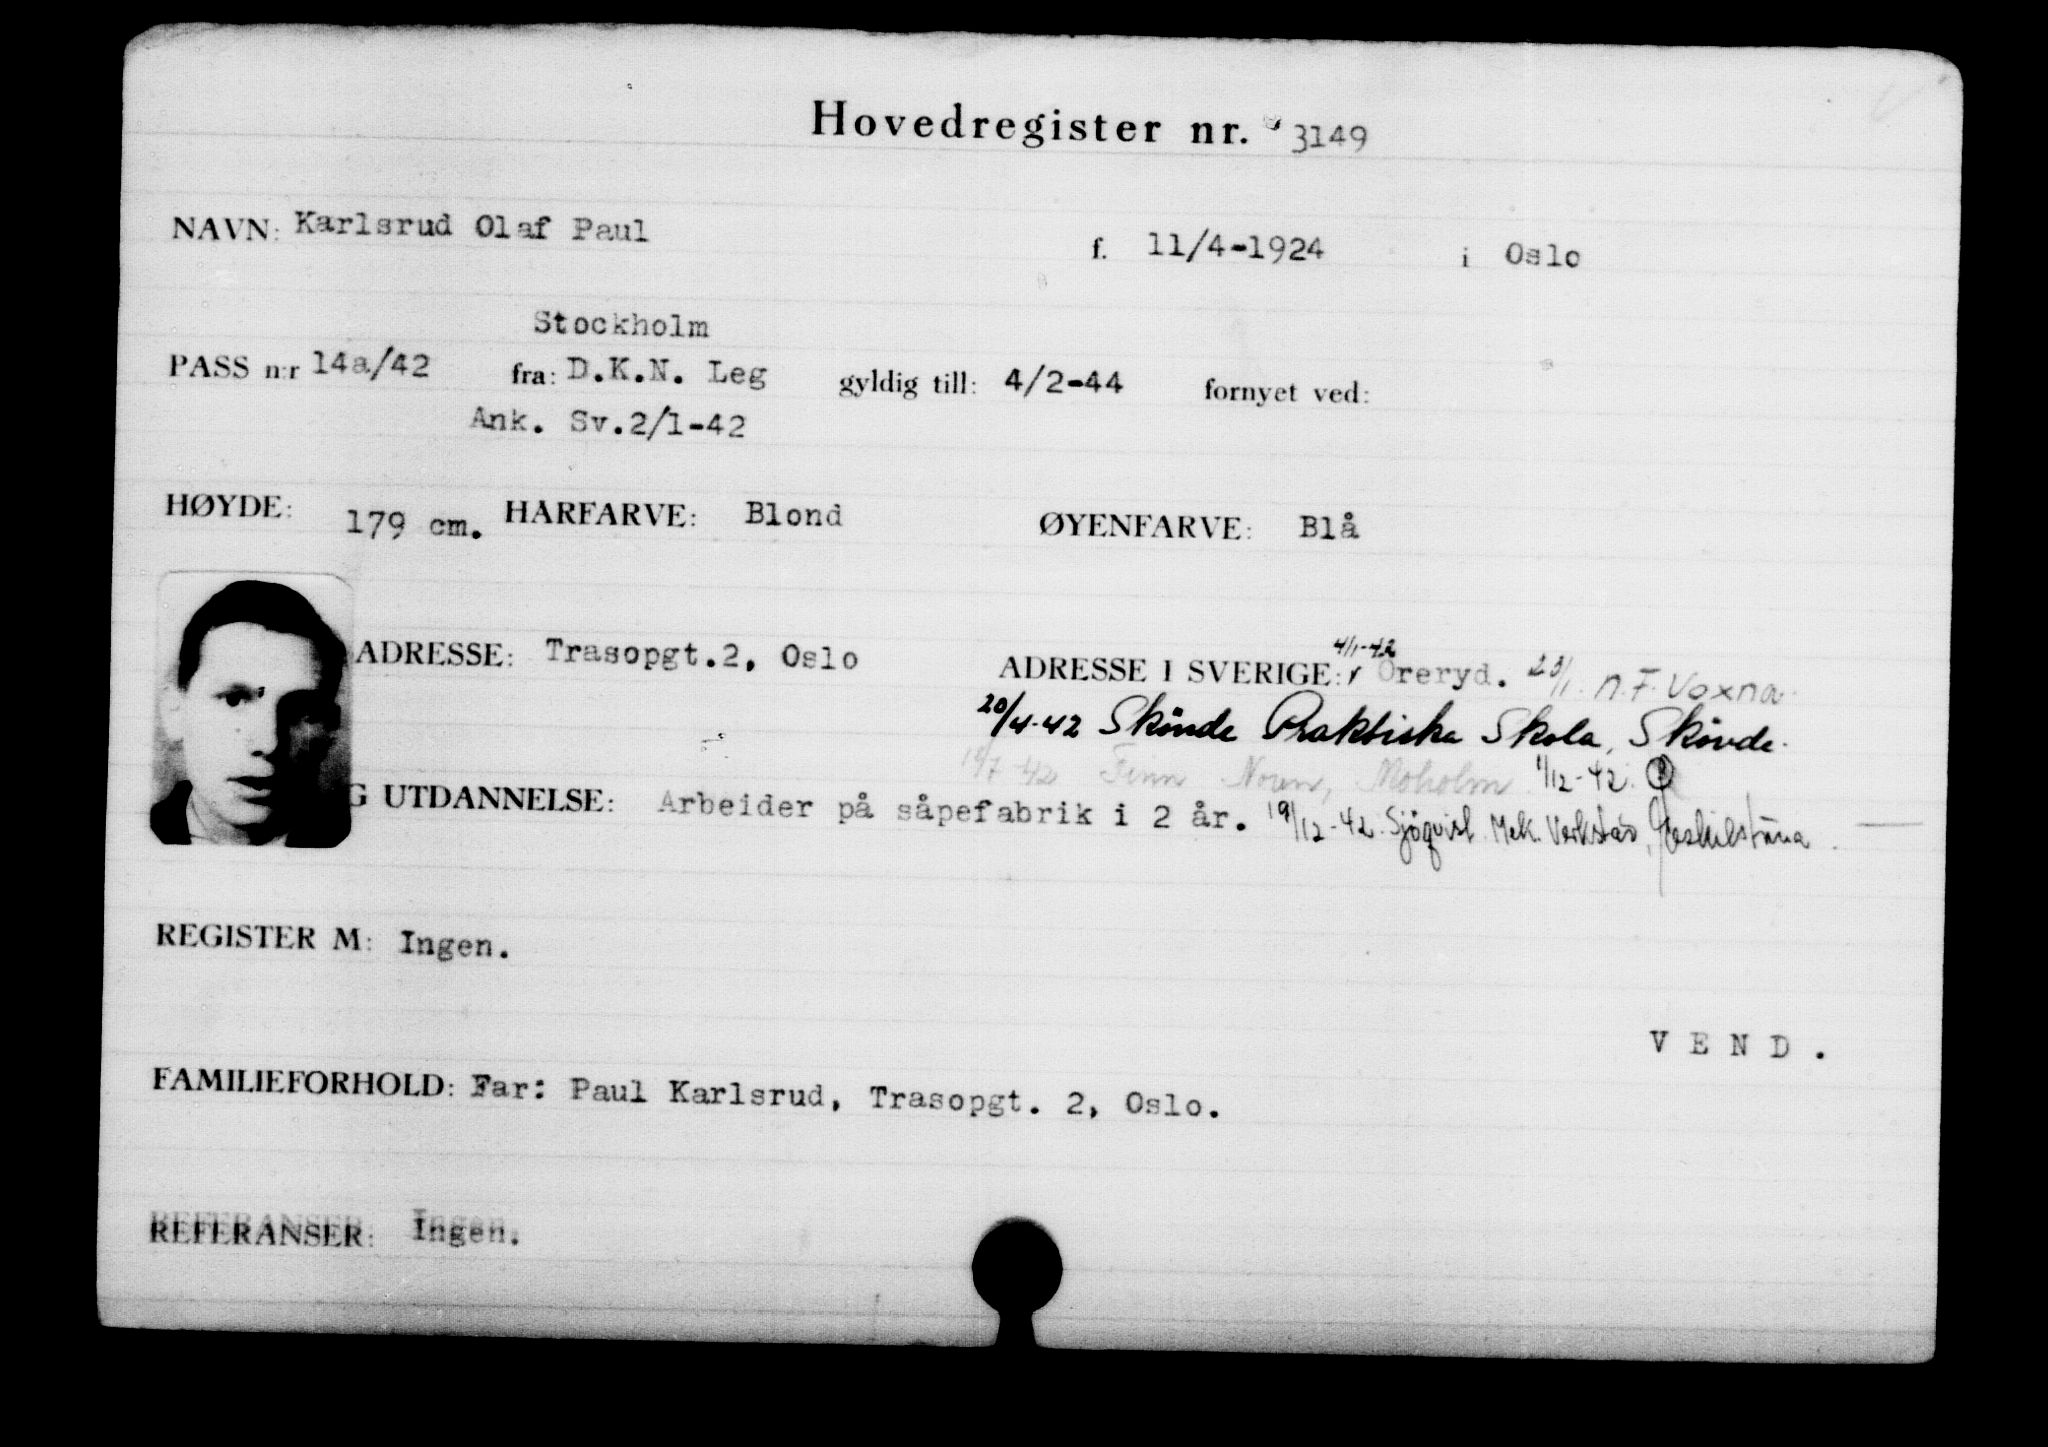 Hovedregister nr. 3149
NAVN: Karlsrud Olaf Paul f. 11/4-1924 i Oslo
Stockholm
PASS n:r 14a/42 fra: D.K.N. Leg gyldig till: 4/2-44 fornyet ved:
Ank. Sv.2/1-42
HØYDE: 179 cm. HÅRFARVE: Blond ØYENFARVE: Blå
4/1-42
ADRESSE: Trasopgt.2, Oslo ADRESSE I SVERIGE: Öreryd. n.F. Voxna.
20/4-42 Skövde Praktiska Skola, Skövde.
7-42 Finn Moholm. 1/12-42.
G UTDANNELSE: Arbeider på såpefabrik i 2 år. 19/12-42. Sjöqvist Mek. Verkstad, Eskilstuna.
REGISTER M: Ingen.
VEND.
FAMILIEFORHOLD: Far: Paul Karlsrud, Trasopgt. 2, Oslo.
REFERANSER: Ingen.